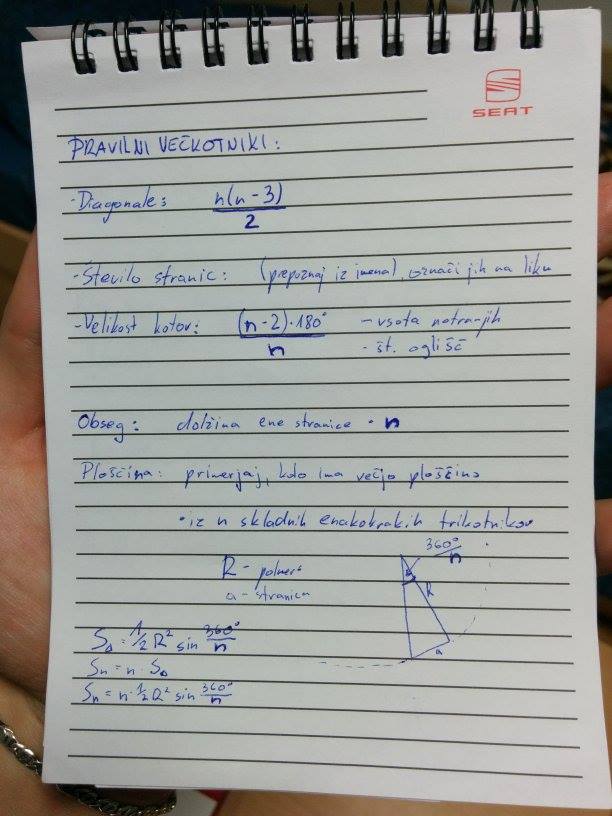 SEAT
PRAVILNI VEČKOTNIKI:
- Diagonale: n(n-3)
2
- Število stranic: (prepoznaj iz imena), označi jih na liku
- Velikost kotov: (n-2)·180° - vsota notranjih
n - št. oglišč
Obseg: dolžina ene stranice · n
Ploščina: primerjaj, kdo ima večjo ploščino
• iz n skladnih enakokrakih trikotnikov
360°
n
R - polmer
a - stranica
R
a
S△ = 1/2 R² sin 360°/n
Sn = n · S△
Sn = n · 1/2 R² sin 360°/n